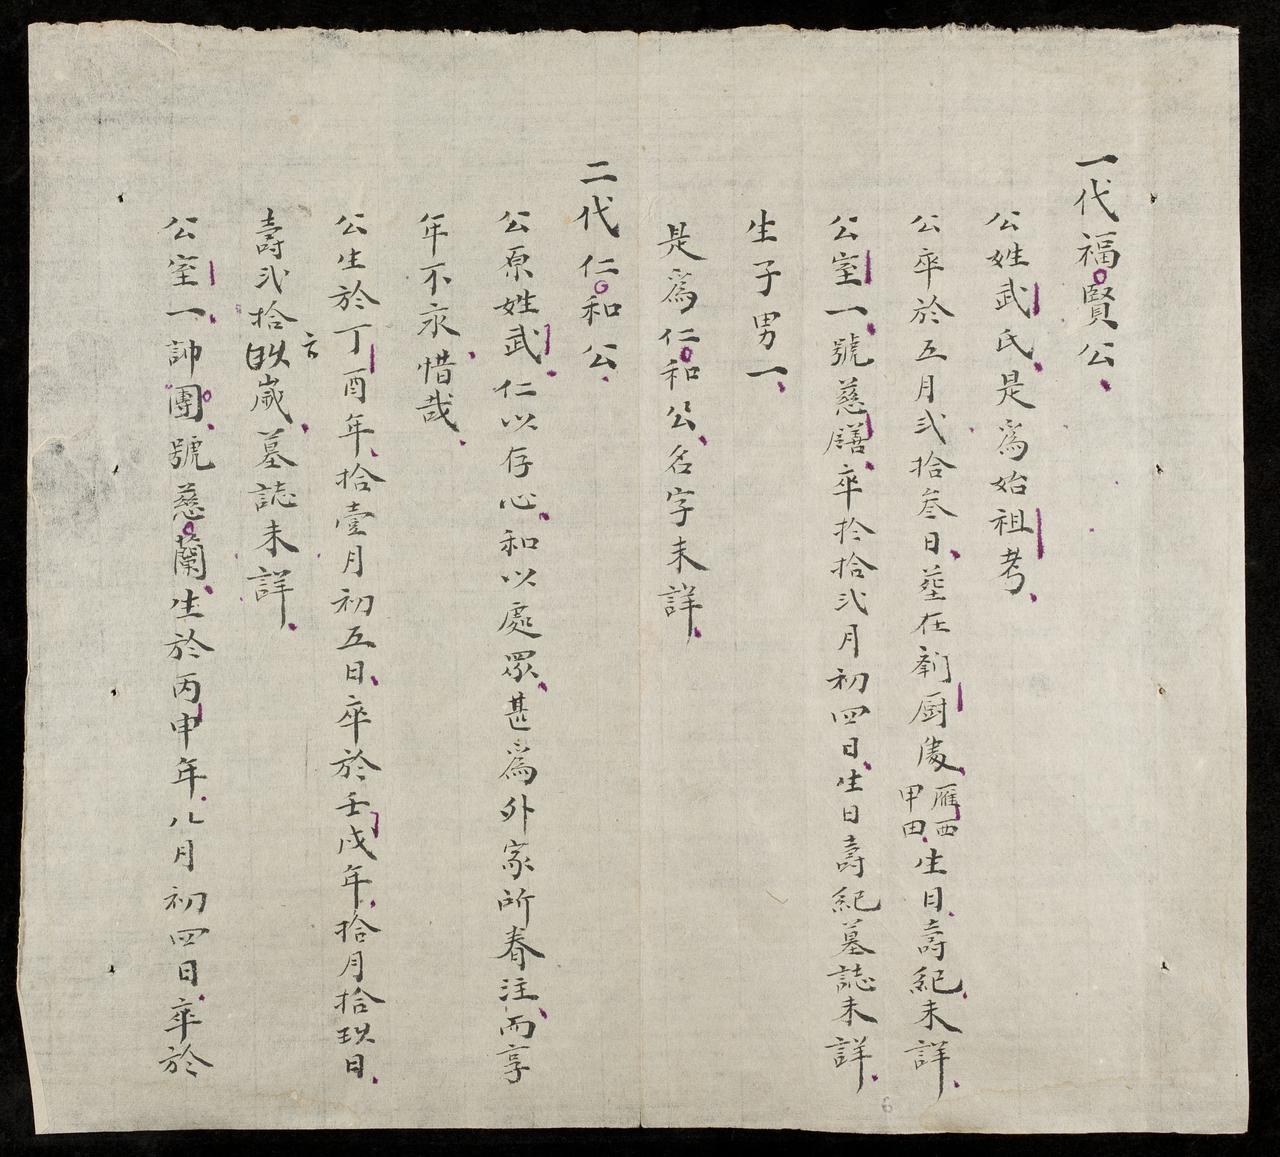 一代福賢公
公姓武氏是爲始祖考
公卒於五月弍拾叄日塟在𠛌厨處雁西甲田生日壽紀未詳
公室一號慈膳卒於拾弍月初四日生日壽紀墓誌未詳
生子男一
是爲仁和公名字未詳
二代仁和公
公原姓武仁以存心和以處眾甚爲外家所眷注而享
年不永惜哉
公生於丁酉年拾壹月初五日卒於壬戌年拾月拾玖日
壽弍拾歲墓誌未詳
公室一帥團號慈蘭生於丙申年八月初四日卒於